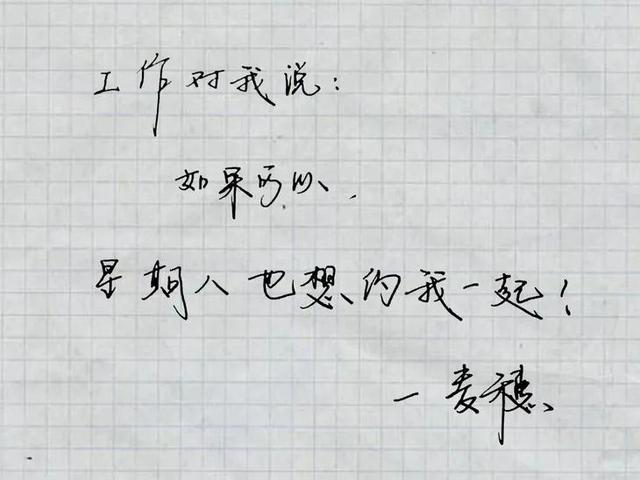 工作对我说：
如果可以，
星期八也想约我一起！
—麦穗